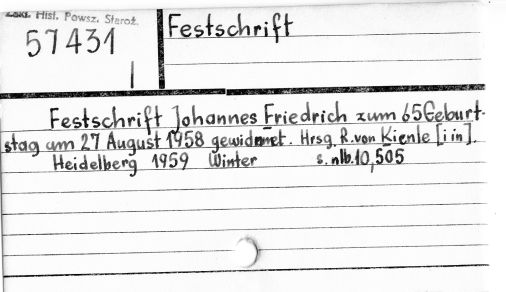 Zakł. Hist. Powsz. Staroż.
57431
Festschrift
Festschrift Johannes Friedrich zum 65 Geburt-
stag am 27 August 1958 gewidmet. Hrsg. R. von Kienle [i in].
Heidelberg 1959 Winter s. nlb. 10, 505